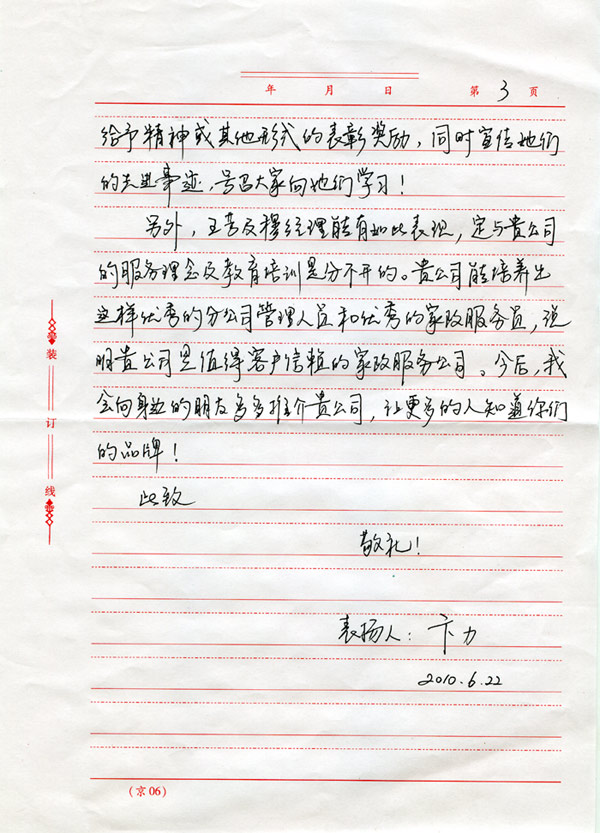 年 月 日 第 3 页
给予精神或其他形式的表彰奖励,同时宣传她们
的先进事迹,号召大家向她们学习!
另外,王芳及穆经理能有如此表现,定与贵公司
的服务理念及教育培训是分不开的。贵公司能培养出
这样优秀的分公司管理人员和优秀的家政服务员,说
明贵公司是值得客户信赖的家政服务公司。今后,我
会向身边的朋友多多推介贵公司,让更多的人知道你们
的品牌!
此致
敬礼!
表扬人:卞力
2010.6.22
装
订
线
(京06)